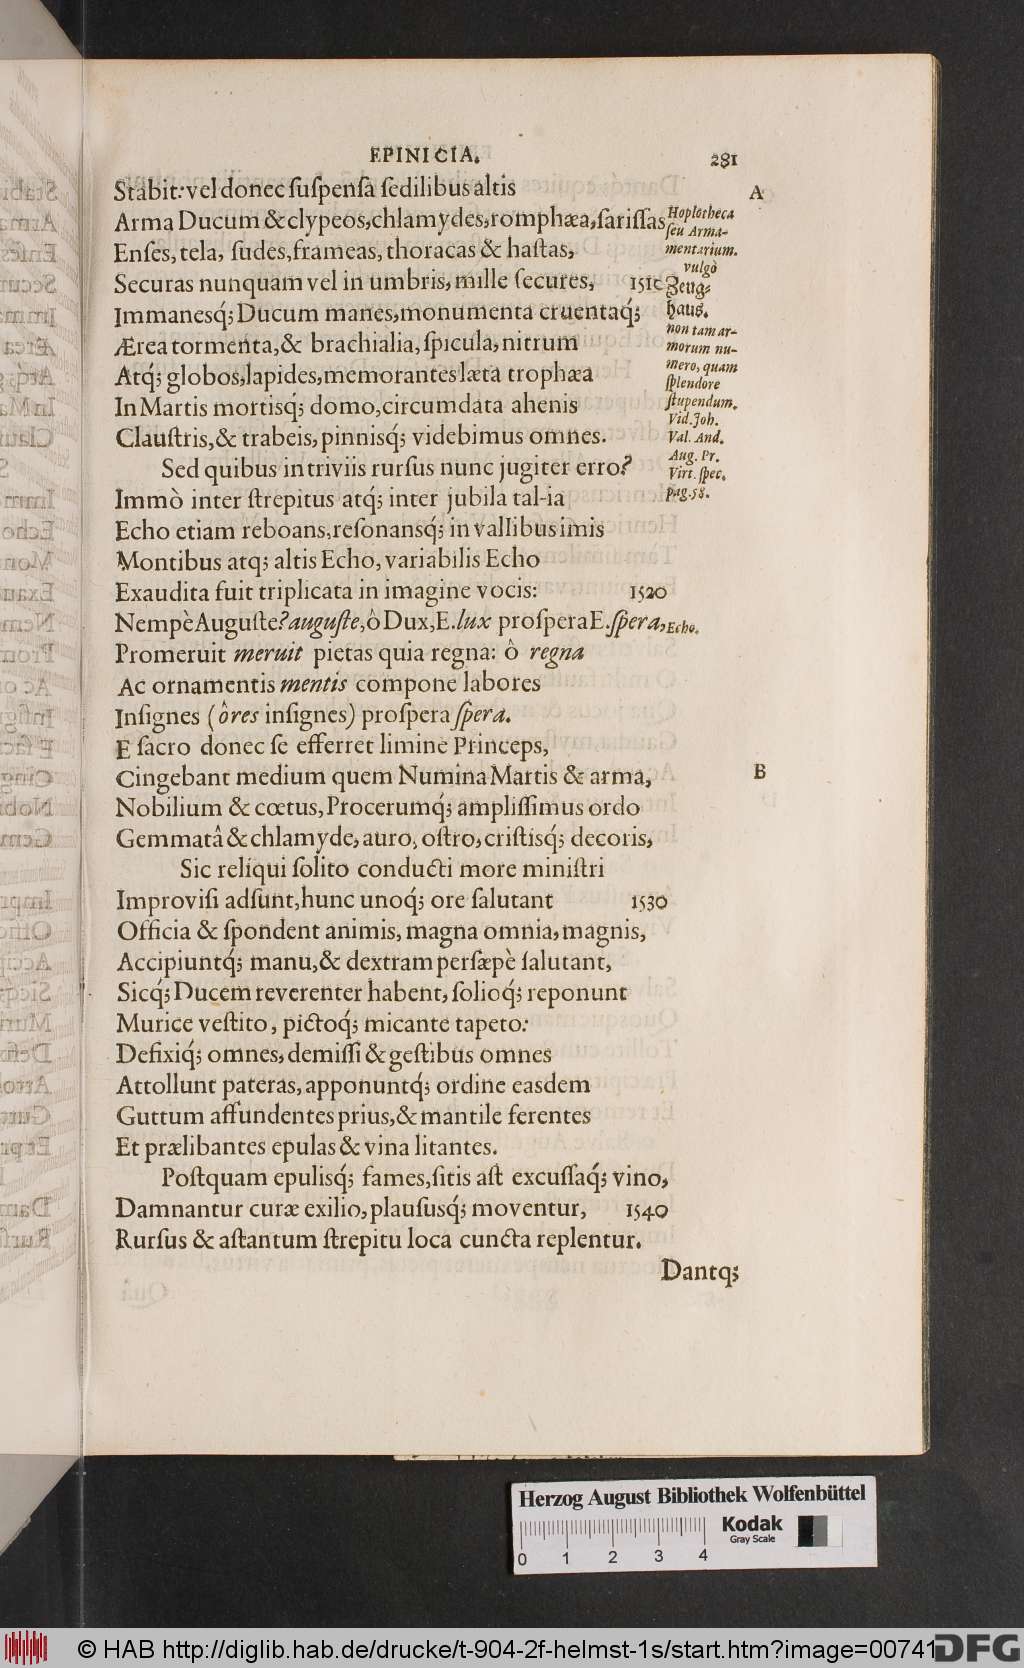 EPINICIA. 281
Stabit: vel donec suspensa sedilibus altis A
Arma Ducum & clypeos, chlamydes, romphæa, sarissas
Enses, tela, sudes, frameas, thoracas & hastas,
Securas nunquam vel in umbris, mille secures, 1510
Immanesq; Ducum manes, monumenta cruentaq;
Ærea tormenta, & brachialia, spicula, nitrum
Atq; globos, lapides, memorantes læta trophæa
In Martis mortisq; domo, circumdata ahenis
Claustris, & trabeis, pinnisq; videbimus omnes.
Sed quibus in triviis rursus nunc jugiter erro?
Immò inter strepitus atq; inter jubila tal-ia
Echo etiam reboans, resonansq; in vallibus imis
Montibus atq; altis Echo, variabilis Echo
Exaudita fuit triplicata in imagine vocis: 1520
Nempè Auguste? auguste, ò Dux, E. lux prospera E. spera,
Promeruit meruit pietas quia regna: ò regna
Ac ornamentis mentis compone labores
Insignes (ôres insignes) prospera spera.
E sacro donec se efferret limine Princeps,
Cingebant medium quem Numina Martis & arma, B
Nobilium & cœtus, Procerumq; amplissimus ordo
Gemmatâ & chlamyde, auro, ostro, cristisq; decoris,
Sic reliqui solito conducti more ministri
Improvisi adsunt, hunc unoq; ore salutant 1530
Officia & spondent animis, magna omnia, magnis,
Accipiuntq; manu, & dextram persæpè salutant,
Sicq; Ducem reverenter habent, solioq; reponunt
Murice vestito, pictoq; micante tapeto:
Defixiq; omnes, demissi & gestibus omnes
Attollunt pateras, apponuntq; ordine easdem
Guttum affundentes prius, & mantile ferentes
Et prælibantes epulas & vina litantes.
Postquam epulisq; fames, sitis ast excussaq; vino,
Damnantur curæ exilio, plaususq; moventur, 1540
Rursus & astantum strepitu loca cuncta replentur.
Dantq;
Hoplotheca
seu Arma-
mentarium.
vulgò
Zeug-
haus.
non tam ar-
morum nu-
mero, quam
splendore
stupendum.
Vid. Joh.
Val. And.
Aug. Pr.
Virt. spec.
pag. 58.
Echo.
Herzog August Bibliothek Wolfenbüttel
Kodak
Gray Scale
0 1 2 3 4
© HAB http://diglib.hab.de/drucke/t-904-2f-helmst-1s/start.htm?image=00741
DFG